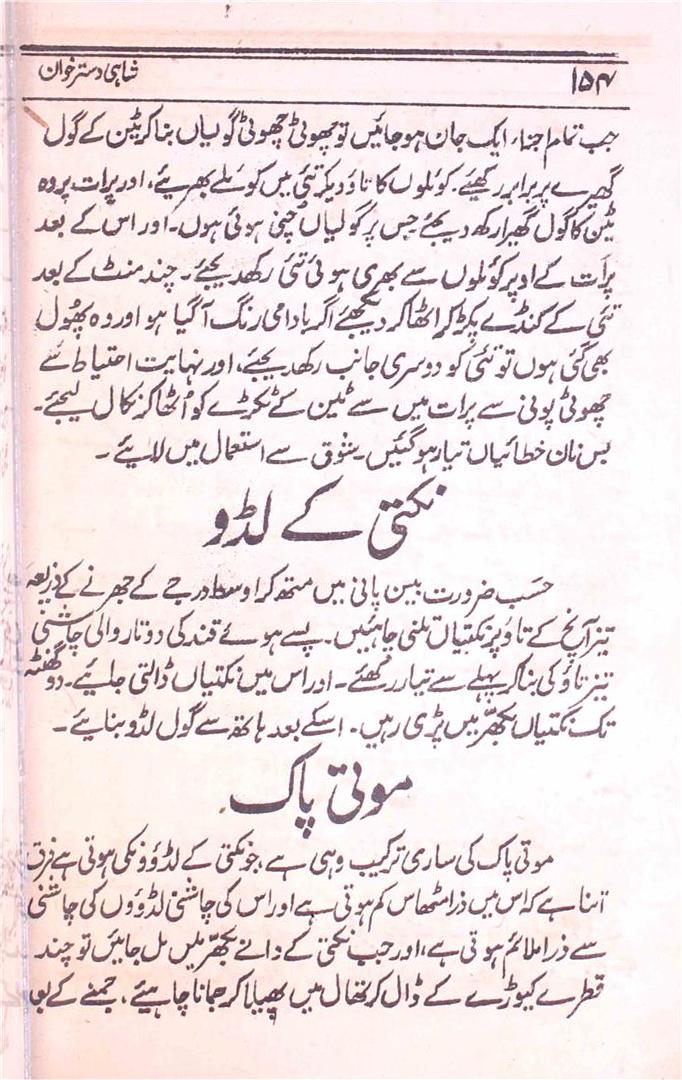 ۱۵۴
شاہی دسترخوان
جب تمام اجزاء ایک جان ہو جائیں تو چھوٹی چھوٹی گولیاں بنا کر ٹین کے گول
گھیرے پر برابر رکھیئے۔ کوئلوں کا تاؤ دیکر تئی میں کوئلے بھریئے، اور پرات پر وہ
ٹین کا گول گھیرا رکھ دیجئے جس پر گولیاں چنی ہوئی ہوں۔ اور اس کے بعد
پرات کے اوپر کوئلوں سے بھری ہوئی تئی رکھدیجئے۔ چند منٹ کے بعد
تئی کے کنڈے پکڑ کر اٹھا کر دیکھئے اگر بادامی رنگ آگیا ہو اور وہ پھول
بھی گئی ہوں تو تئی کو دوسری جانب رکھدیجئے، اور نہایت احتیاط سے
چھوٹی پونی سے پرات میں سے ٹین کے ٹکڑے کو اُٹھا کر نکال لیجئے۔
بس نان خطائیاں تیار ہو گئیں۔ شوق سے استعمال میں لایئے۔
نکتی کے لڈو
حسَب ضرورت بیسن پانی میں متھ کر اوسط درجے کے جھرنے کے ذریعہ
تیز آنچ کے تاؤ پر نکتیاں تلنی چاہئیں۔ پسے ہوئے قند کی دو تار والی چاشنی
تیز تاؤ کی بنا کر پہلے سے تیار رکھئے۔ اور اس میں نکتیاں ڈالتی جایئے۔ دو گھنٹہ
تک نکتیاں بکھّر میں پڑی رہیں۔ اسکے بعد ہاتھ سے گول لڈو بنایئے۔
موتی پاک
موتی پاک کی ساری ترکیب وہی ہے جو نکتی کے لڈوؤ ونکی ہوتی ہے فرق
اتنا ہے کہ اس میں ذرا مٹھاس کم ہوتی ہے اور اس کی چاشنی لڈوؤں کی چاشنی
سے ذرا ملائم ہوتی ہے، اور جب نکتی کے دانے بکھّر میں مل جائیں تو چند
قطرے کیوڑے کے ڈال کر تھال میں پھیلا کر جمانا چاہیئے، جمنے کے بعد